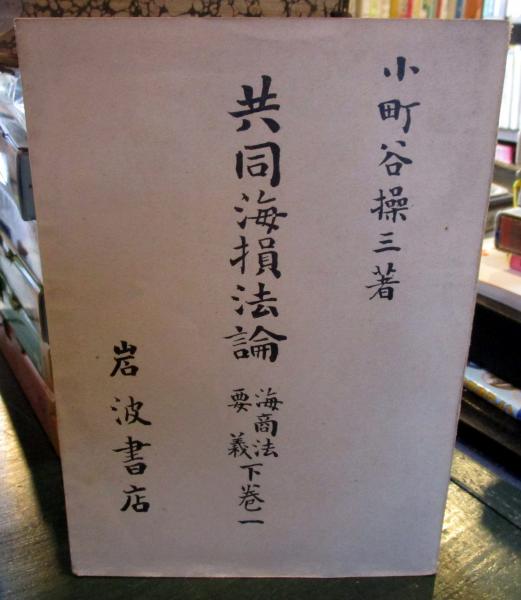 小町谷操三著
共同海損法論
海商法
要義
下巻一
岩波書店